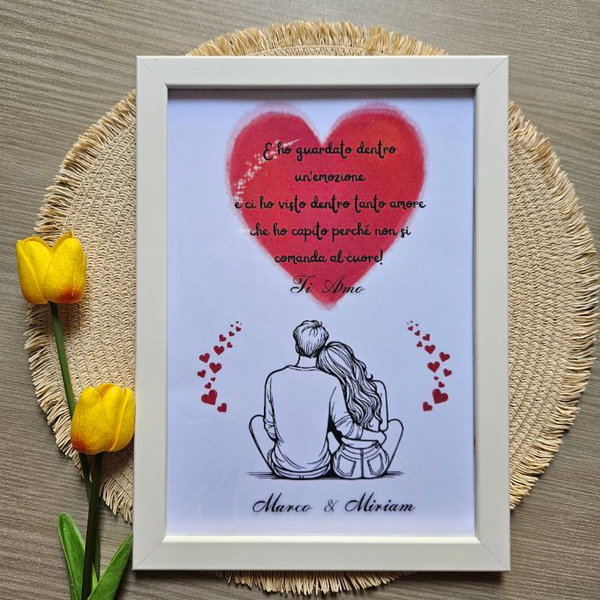 E ho guardato dentro
un'emozione
e ci ho visto dentro tanto amore
che ho capito perché non si
comanda al cuore!
Ti Amo
Marco & Miriam